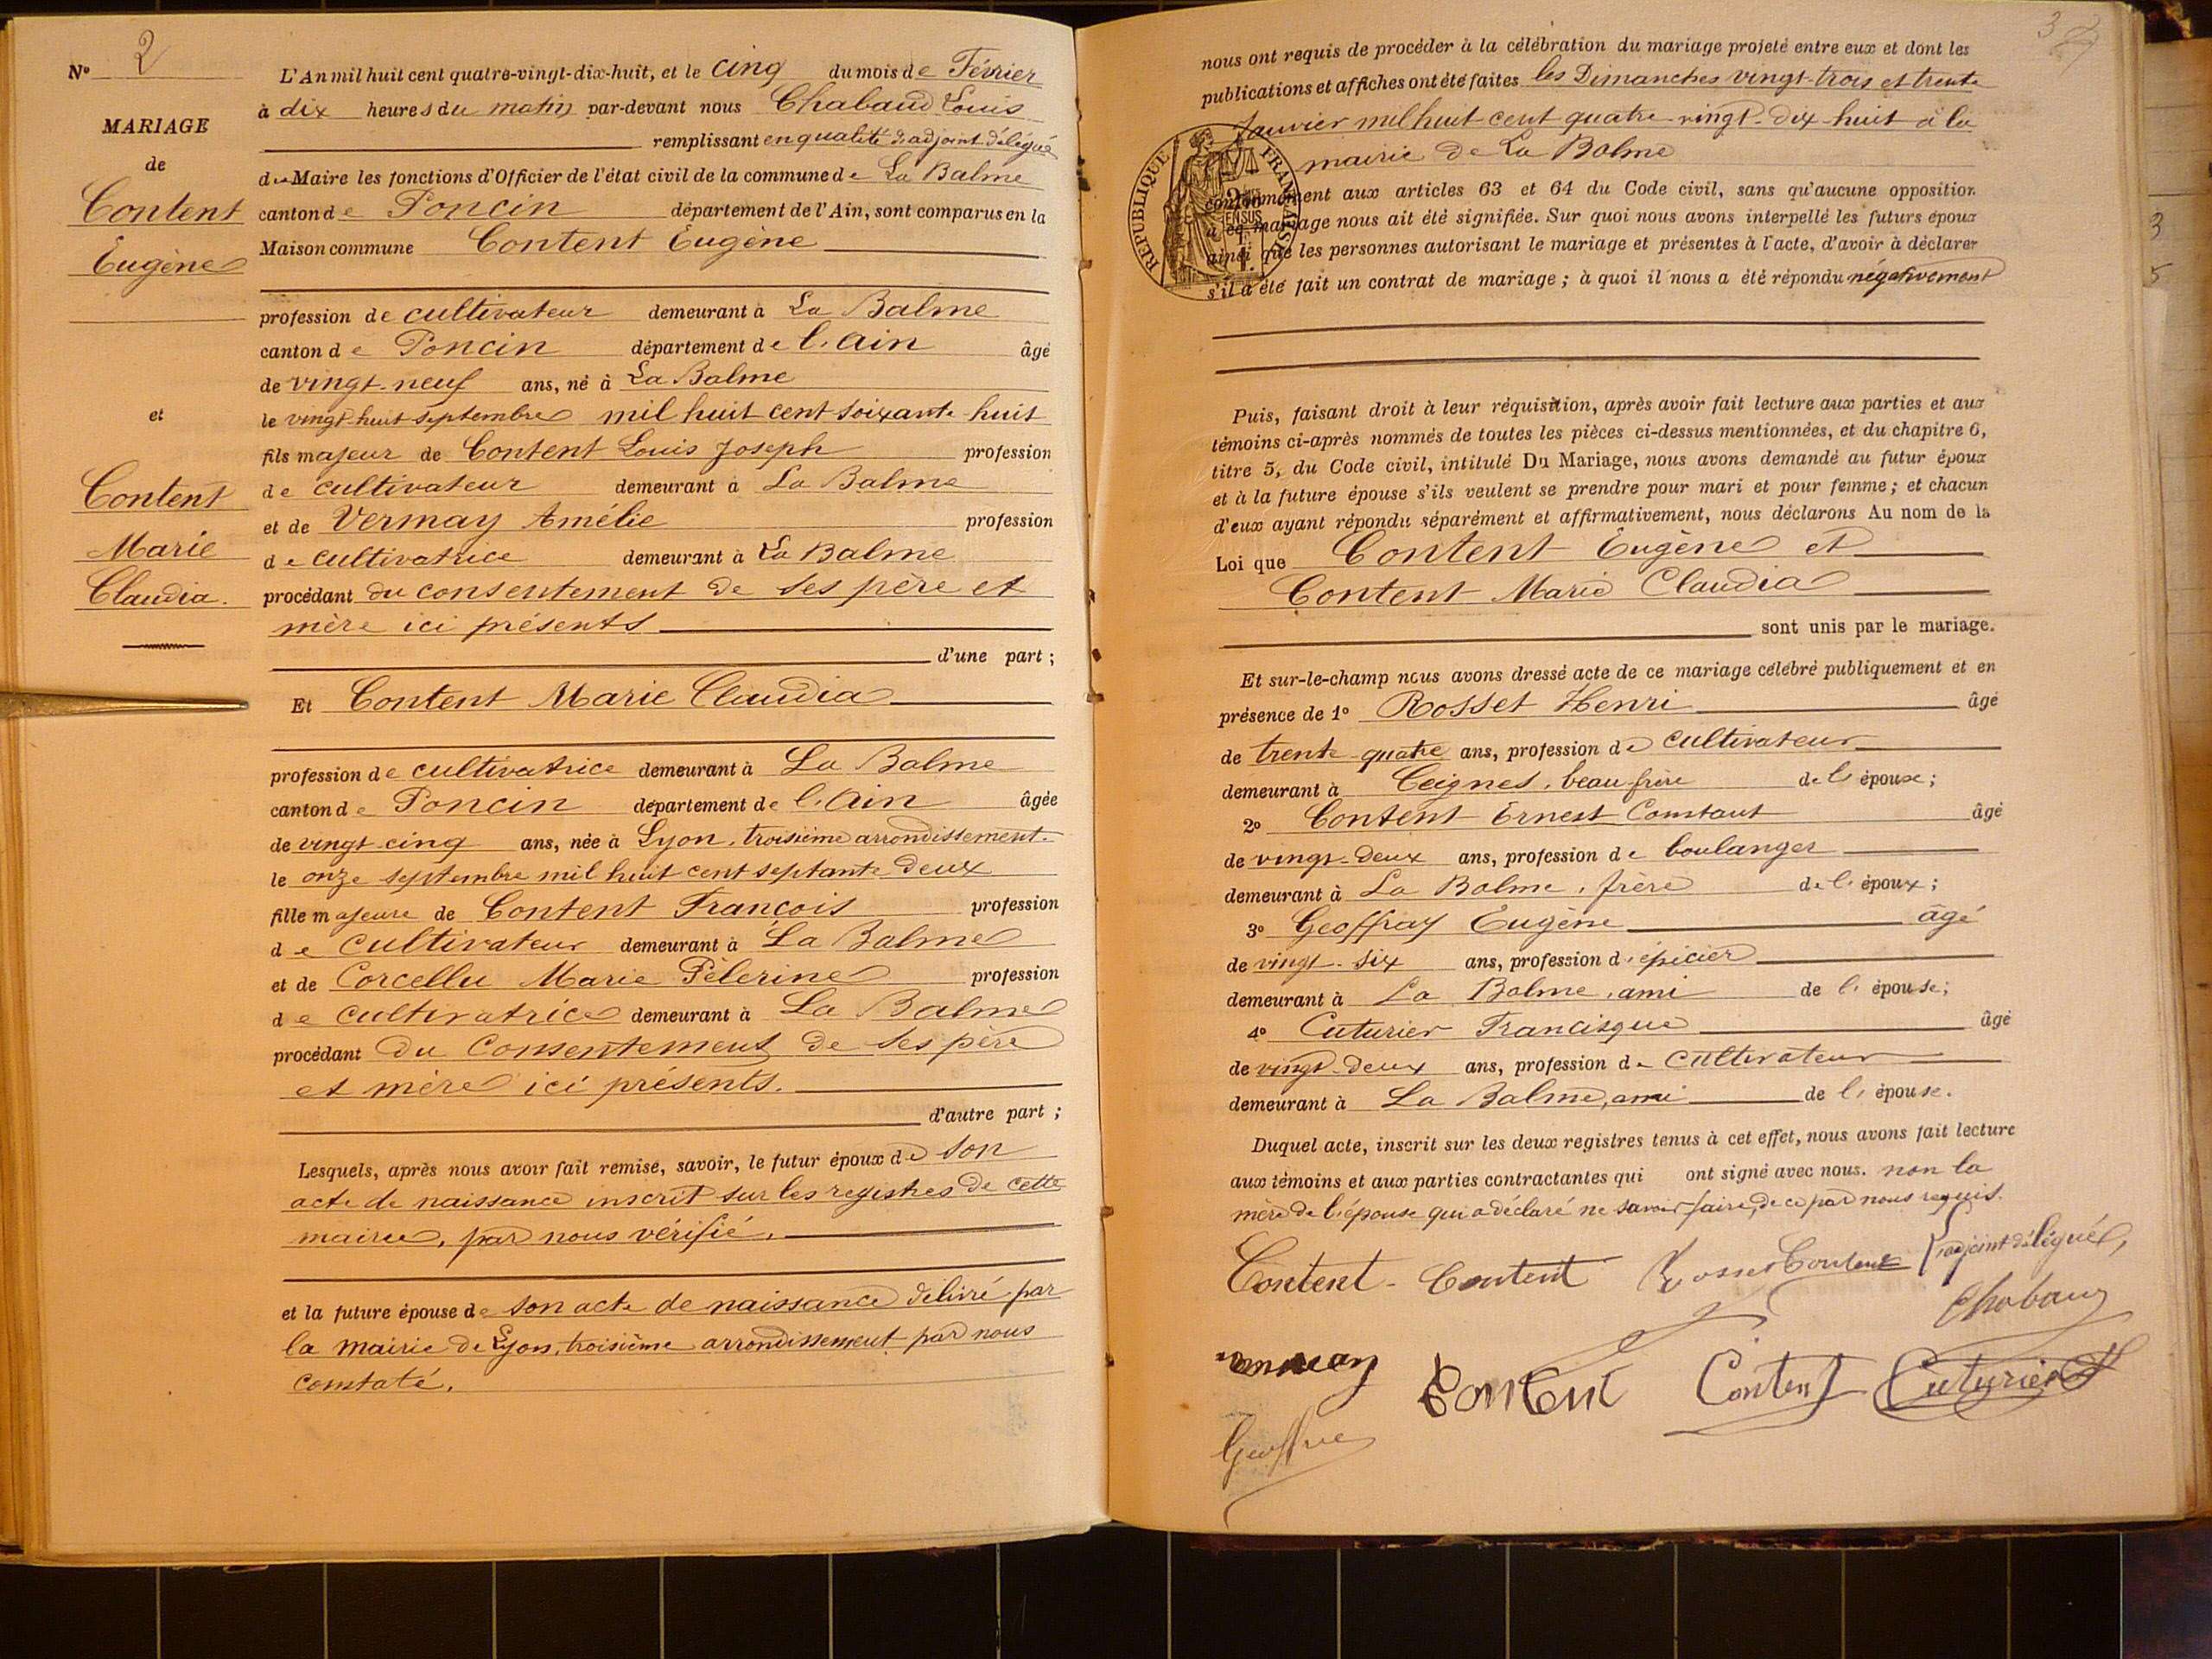 N° 2
MARIAGE
de
Content
Eugène
et
Content
Marie
Claudia.
L'An mil huit cent quatre-vingt-dix-huit, et le cinq du mois de Février
à dix heures du matin par-devant nous Chabaud Louis
remplissant en qualité d'adjoint délégué
du Maire les fonctions d'Officier de l'état civil de la commune de La Balme
canton de Poncin département de l'Ain, sont comparus en la
Maison commune Content Eugène
profession de cultivateur demeurant à La Balme
canton de Poncin département de l'Ain âgé
de vingt-neuf ans, né à La Balme
le vingt-huit septembre mil huit cent soixante-huit
fils majeur de Content Louis Joseph profession
de cultivateur demeurant à La Balme
et de Vermay Amélie profession
de cultivatrice demeurant à La Balme
procédant du consentement de ses père et
mère ici présents
d'une part ;
Et Content Marie Claudia
profession de cultivatrice demeurant à La Balme
canton de Poncin département de l'Ain âgée
de vingt-cinq ans, née à Lyon, troisième arrondissement.
le onze septembre mil huit cent septante deux
fille majeure de Content François profession
de cultivateur demeurant à La Balme
et de Corcellu Marie Pèlerine profession
de cultivatrice demeurant à La Balme
procédant du consentement de ses père
et mère ici présents.
d'autre part ;
Lesquels, après nous avoir fait remise, savoir, le futur époux de son
acte de naissance inscrit sur les registres de cette
mairie, par nous vérifié.
et la future épouse de son acte de naissance délivré par
la mairie de Lyon, troisième arrondissement par nous
constaté.
3
nous ont requis de procéder à la célébration du mariage projeté entre eux et dont les
publications et affiches ont été faites les Dimanches vingt-trois et trente
Janvier mil huit cent quatre-vingt-dix-huit à la
mairie de La Balme
REPUBLIQUE FRANÇAISE
conformément aux articles 63 et 64 du Code civil, sans qu'aucune opposition
à ce mariage nous ait été signifiée. Sur quoi nous avons interpellé les futurs époux
ainsi que les personnes autorisant le mariage et présentes à l'acte, d'avoir à déclarer
s'il a été fait un contrat de mariage ; à quoi il nous a été répondu négativement
Puis, faisant droit à leur réquisition, après avoir fait lecture aux parties et aux
témoins ci-après nommés de toutes les pièces ci-dessus mentionnées, et du chapitre 6,
titre 5, du Code civil, intitulé Du Mariage, nous avons demandé au futur époux
et à la future épouse s'ils veulent se prendre pour mari et pour femme ; et chacun
d'eux ayant répondu séparément et affirmativement, nous déclarons Au nom de la
Loi que Content Eugène et
Content Marie Claudia
sont unis par le mariage.
Et sur-le-champ nous avons dressé acte de ce mariage célébré publiquement et en
présence de 1° Rosset Henri âgé
de trente-quatre ans, profession de cultivateur
demeurant à Ceignes, beau-frère de l'épouse ;
2° Content Ernest Constant âgé
de vingt-deux ans, profession de boulanger
demeurant à La Balme, frère de l'époux ;
3° Geoffray Eugène âgé
de vingt-six ans, profession d'épicier
demeurant à La Balme, ami de l'épouse ;
4° Cuturier Francisque âgé
de vingt-deux ans, profession de cultivateur
demeurant à La Balme, ami de l'épouse.
Duquel acte, inscrit sur les deux registres tenus à cet effet, nous avons fait lecture
aux témoins et aux parties contractantes qui ont signé avec nous. non la
mère de l'épouse qui a déclaré ne savoir faire, de ce par nous requis.
Content Content Rosset Content adjoint délégué,
Chabaud
Vermay Content Content Cuturier
3
5